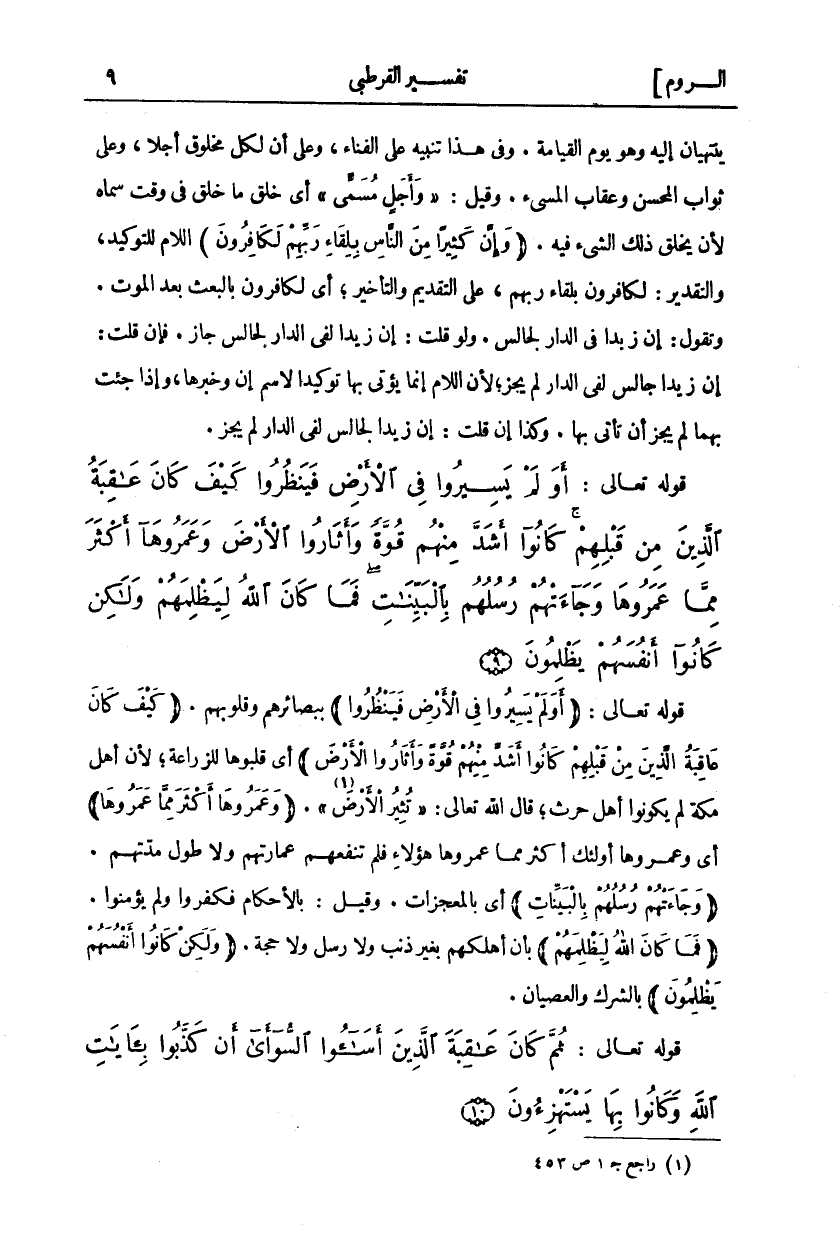 الـــروم] تفســـير القرطبي ٩
ينتهيان إليه وهو يوم القيامة . وفى هـذا تنبيه على الفناء ، وعلى أن لكل مخلوق أجلا ، وعلى
ثواب المحسن وعقاب المسىء . وقيل : « وَأَجَلٍ مُسَمًّى » أى خلق ما خلق فى وقت سماه
لأن يخلق ذلك الشىء فيه . ﴿ وَإِنَّ كَثِيرًا مِنَ النَّاسِ بِلِقَاءِ رَبِّهِمْ لَكَافِرُونَ ﴾ اللام للتوكيد،
والتقدير : لكافرون بلقاء ربهم ، على التقديم والتأخير ؛ أى لكافرون بالبعث بعد الموت .
وتقول : إن زيدا فى الدار لجالس . ولو قلت : إن زيدا لفى الدار لجالس جاز . فإن قلت :
إن زيدا جالس لفى الدار لم يجز؛ لأن اللام إنما يؤتى بها توكيدا لاسم إن وخبرها، وإذا جئت
بهما لم يجز أن تأتى بها . وكذا إن قلت : إن زيدا لجالس لفى الدار لم يجز .
قوله تعـالى : أَوَ لَمْ يَسِـيرُوا فِى ٱلْأَرْضِ فَيَنظُرُوا كَيْفَ كَانَ عَـٰقِبَةُ
ٱلَّذِينَ مِن قَبْلِهِمْ ۚ كَانُوٓا أَشَدَّ مِنْهُـم قُوَّةً وَأَثَارُوا ٱلْأَرْضَ وَعَمَرُوهَآ أَكْثَرَ
مِمَّـا عَمَرُوهَا وَجَآءَتْهُمْ رُسُلُهُم بِٱلْبَيِّنَـٰتِ ۖ فَمَـا كَانَ ٱللَّهُ لِيَظْلِمَهُمْ وَلَـٰكِن
كَانُوٓا أَنفُسَهُمْ يَظْلِمُونَ ۝٩
قوله تعـالى : ﴿ أَوَلَمْ يَسِيرُوا فِى الْأَرْضِ فَيَنْظُرُوا ﴾ ببصائرهم وقلوبهم . ﴿ كَيْفَ كَانَ
عَاقِبَةُ الَّذِينَ مِنْ قَبْلِهِمْ كَانُوا أَشَدَّ مِنْهُمْ قُوَّةً وَأَثَارُوا الْأَرْضَ ﴾ أى قلبوها للزراعة؛ لأن أهل
مكة لم يكونوا أهل حرث؛ قال الله تعالى: « تُثِيرُ الْأَرْضَ »(١) . ﴿ وَعَمَرُوهَا أَكْثَرَ مِمَّا عَمَرُوهَا﴾
أى وعمـروها أولئك أكثر ممـا عمروها هؤلاء فلم تنفعهـم عمارتهم ولا طول مدّتهـم .
﴿ وَجَاءَتْهُمْ رُسُلُهُمْ بِالْبَيِّنَاتِ ﴾ أى بالمعجزات . وقيـل : بالأحكام فكفروا ولم يؤمنوا .
﴿ فَمَـا كَانَ اللهُ لِيَظْلِمَهُمْ ﴾ بأن أهلكهم بغير ذنب ولا رسل ولا حجة . ﴿ وَلَكِنْ كَانُوا أَنْفُسَهُمْ
يَظْلِمُونَ ﴾ بالشرك والعصيان .
قوله تعـالى : ثُمَّ كَانَ عَـٰقِبَةَ ٱلَّذِينَ أَسَـٰٓـُٔوا ٱلسُّوٓأَىٰٓ أَن كَذَّبُوا بِـَٔايَـٰتِ
ٱللَّهِ وَكَانُوا بِهَا يَسْتَهْزِءُونَ ۝١٠
(١) راجع جـ ١ ص ٤٥٣